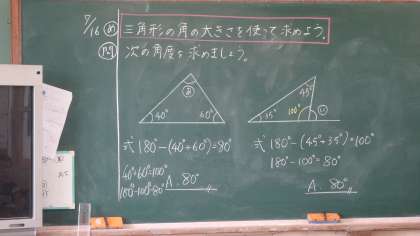 7/16 め 三角形の角の大きさを使って求めよう。
問 次の角度を求めましょう。
あ
40° 60°
45°
35° 100° い
式 180-(40+60)=80°
40+60=100°
180-100=80°
A. 80°
式 180°-(45°+35°)=100°
180°-100°=80°
A. 80°